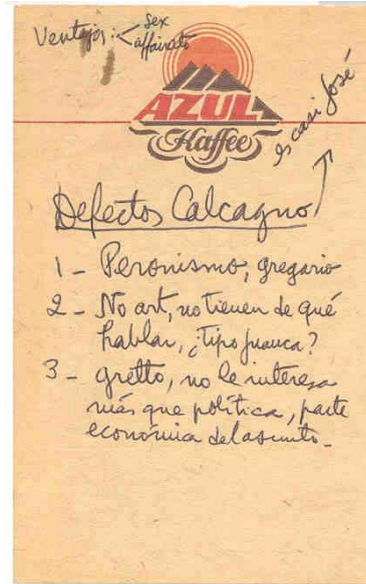 Ventajas: < Sex
affairato
AZUL
Kaffee
es casi José
Defectos Calcagno
1 - Peronismo, gregario
2 - No art, no tienen de qué
hablar, ¿tipo Juanca?
3 - gretto, no le interesa
más que política, parte
económica del asunto.